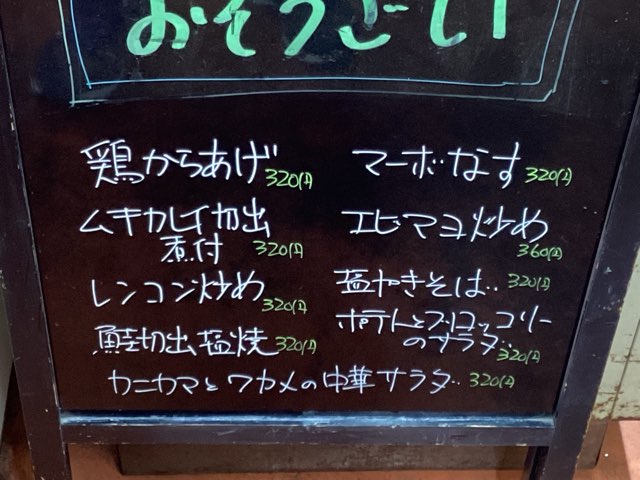 おそうざい
鶏からあげ 320円
ムキカレイ切出
煮付 320円
レンコン炒め 320円
鮭切出塩焼 320円
マーボなす 320円
エビマヨ炒め 360円
塩やきそば 320円
ポテトとブロッコリー
のサラダ 320円
カニカマとワカメの中華サラダ 320円